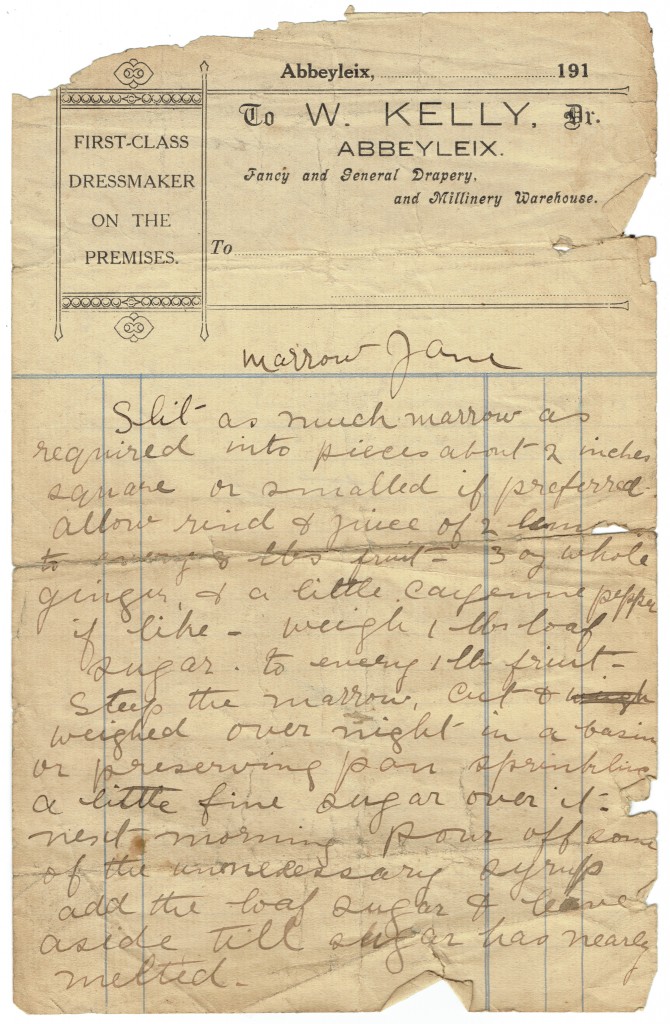 Abbeyleix, 191
FIRST-CLASS
DRESSMAKER
ON THE
PREMISES.
To W. KELLY, Dr.
ABBEYLEIX.
Fancy and General Drapery,
and Millinery Warehouse.
To
Marrow Jam
Slit as much marrow as
required into pieces about 2 inches
square or smalled if preferred.
allow rind & juice of 2
to every lbs fruit - 3 oz whole
ginger, & a little cayenne pepper
if like - weigh 1 lbs loaf
sugar. to every 1 lb fruit -
Steep the marrow, cut & weigh
weighed over night in a basin
or preserving pan sprinkling
a little fine sugar over it -
next morning pour off some
of the unnecessary syrup
add the loaf sugar & leave
aside till sugar has nearly
melted -